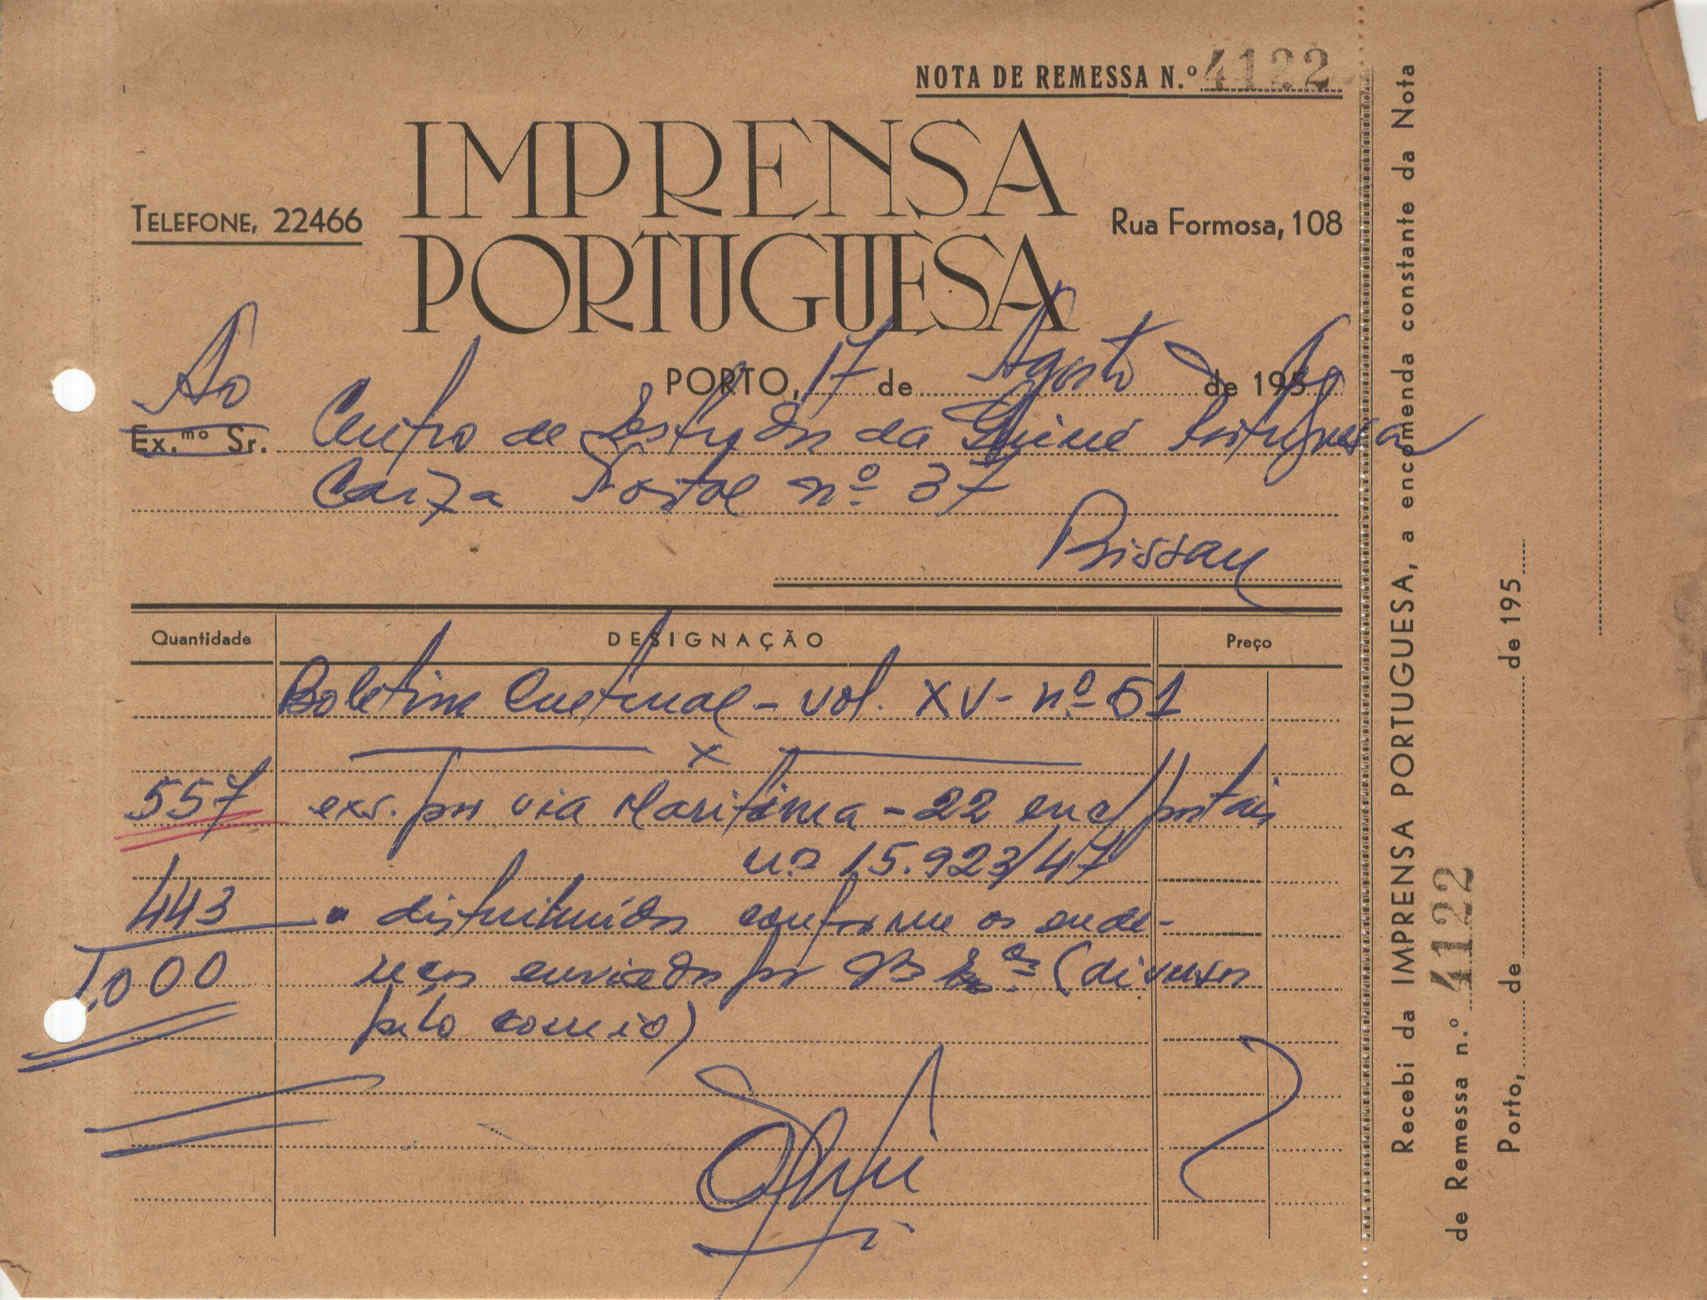 NOTA DE REMESSA N.º 4122
IMPRENSA
PORTUGUESA
TELEFONE, 22466
Rua Formosa, 108
PORTO, 17 de Agosto de 1960
Ao
Ex.mo Sr. Centro de Estudos da Guiné Portuguesa
Caixa Postal nº 37
Bissau
Quantidade DESIGNAÇÃO Preço
Boletim Cultural - vol. XV - nº 51
x
557 exs. por via Maritima - 22 enc/ postais
n.os 15.923/47
443 " distribuidos conforme os ende-
1.000 reços enviados por (diversos
pelo correio)
Recebi da IMPRENSA PORTUGUESA, a encomenda constante da Nota
de Remessa n.º 4122
Porto, de de 195